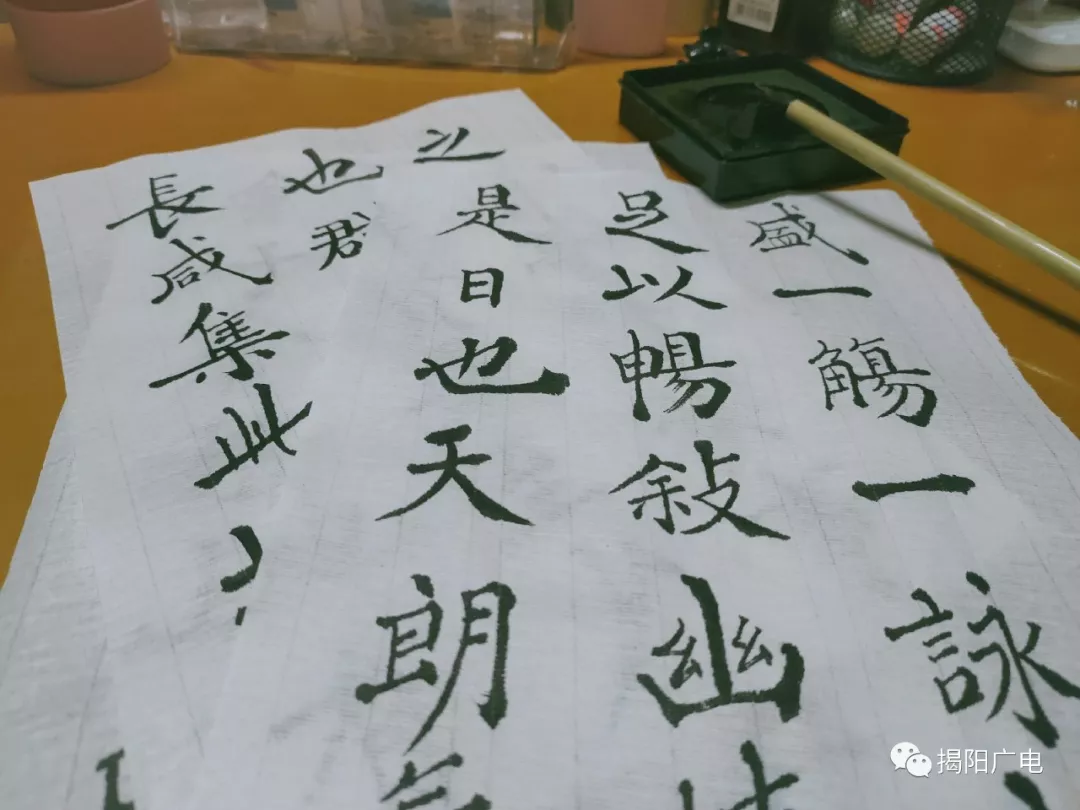 盛一觴一詠
足以暢敘幽
之是日也天朗
也君
長咸集此
揭阳广电